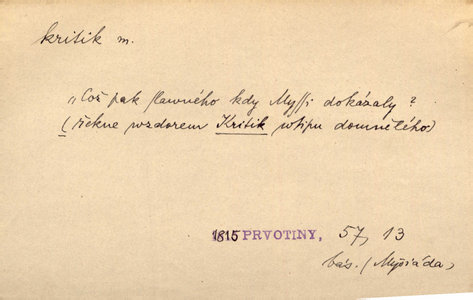 kritik m.
„Což pak slawného kdy Myssi dokázaly?
(řekne wzdorem Kritik wtipu domnělého)
1815 PRVOTINY, 57, 13
bás. (Myšiáda)